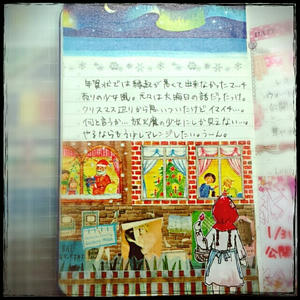 年賀状では縁起が悪くて出来なかったマッチ
売りの少女風。元々は大晦日の話だったっけ。
クリスマス辺りか思いついたけどイマイチ…。
何と言うか…放火魔の少女にしか見えない…。
やるならもう少しアレンジしたい。うーん。
1/31
公開